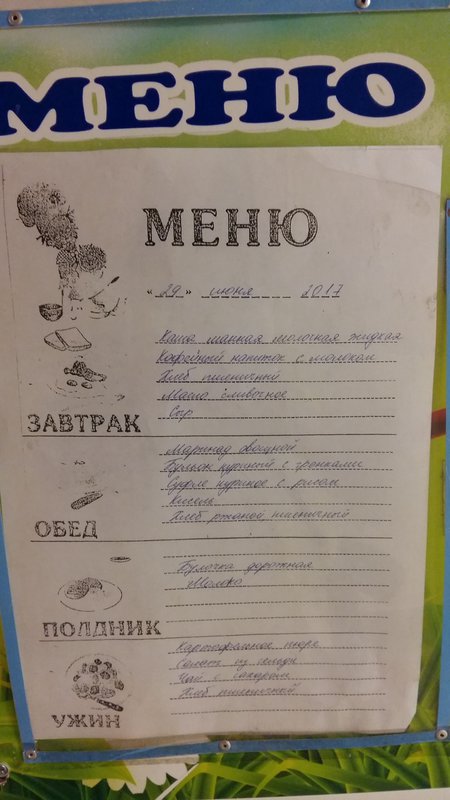 МЕНЮ
МЕНЮ
«29» июня 2017
Каша манная молочная жидкая
Кофейный напиток с молоком
Хлеб пшеничный
Масло сливочное
Сыр
ЗАВТРАК
Маринад овощной
Бульон куриный с гренками
Суфле куриное с рисом
Кисель
Хлеб ржаной, пшеничный
ОБЕД
Булочка дорожная
Молоко
ПОЛДНИК
Картофельное пюре
Салат из
Чай с сахаром
Хлеб пшеничный
УЖИН